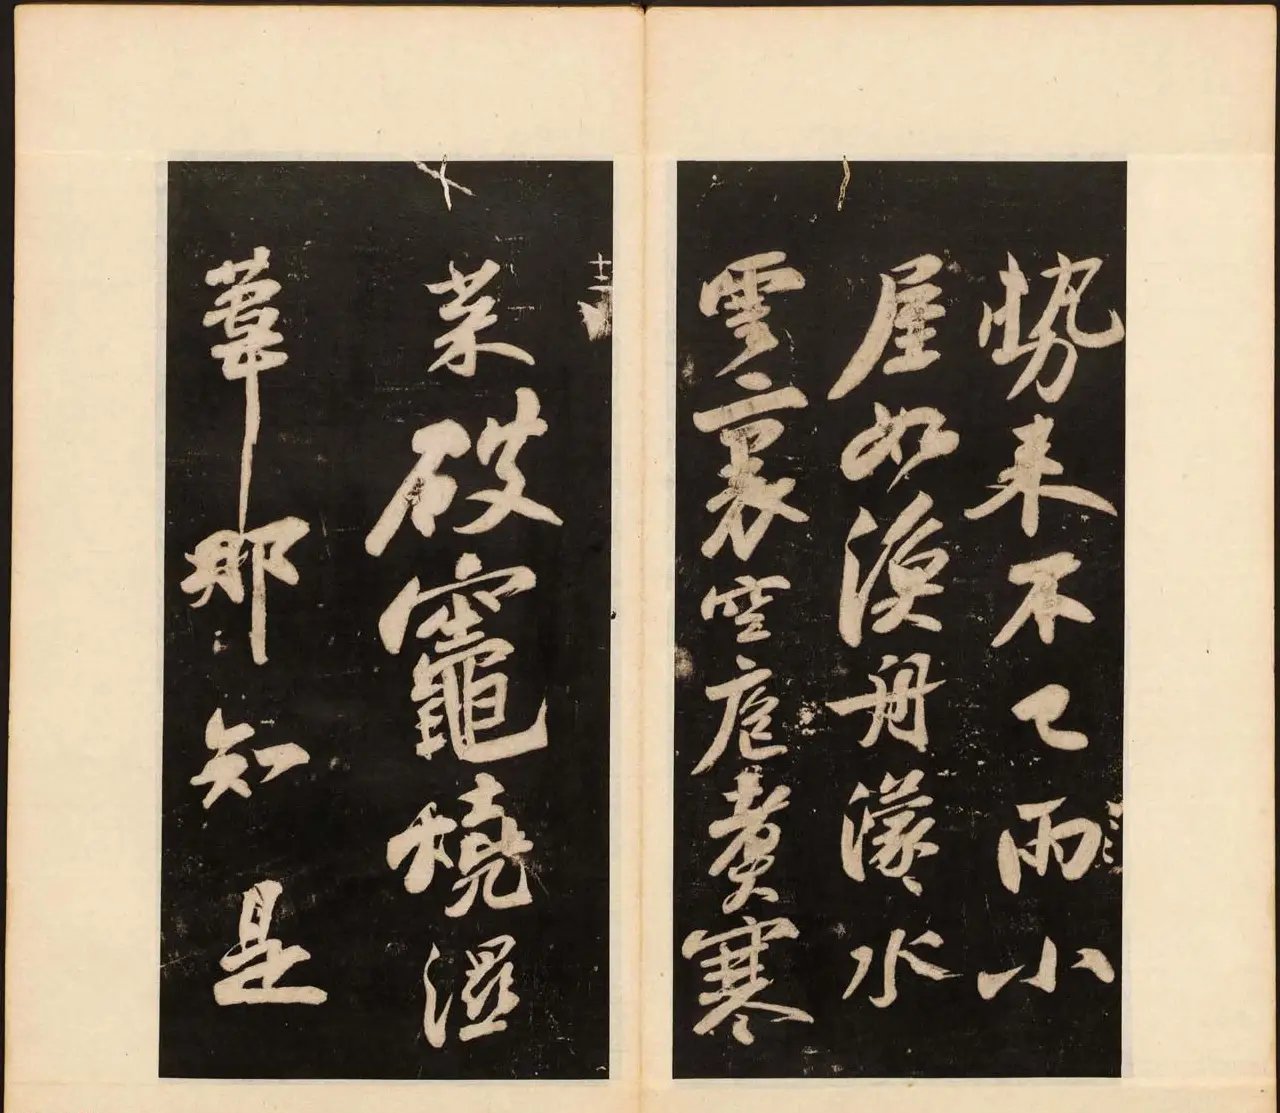 势来不已雨小
屋如漁舟濛〻水
雲裏空庖煑寒
菜破竈燒濕
葦那知是